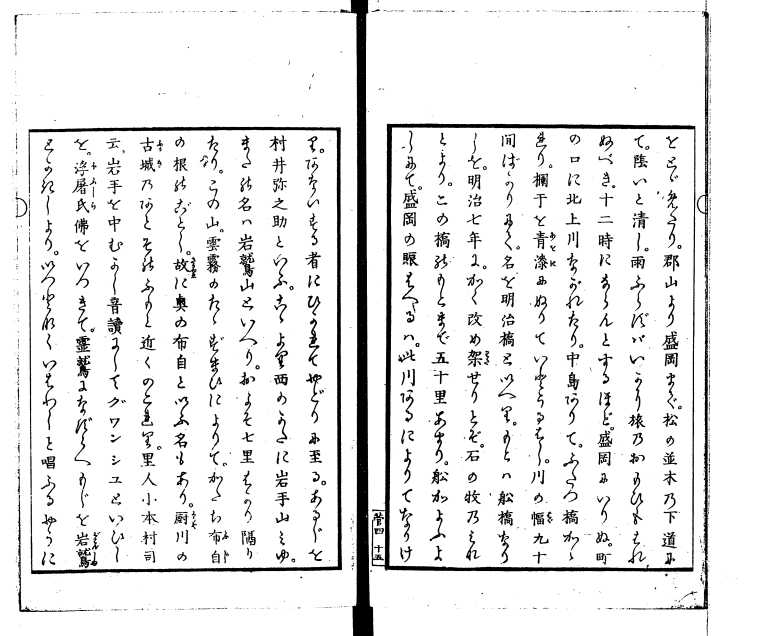 をとぢ見えたり。郡山より盛岡まで。松の並木乃下道に
て。陰いと清し。雨ふらずバいかり旅乃おもひもはれ
ぬべき。十二時にならんとするほど。盛岡にいりぬ。町
の口に北上川ながれたり。中島ありて。ふたつ橋かゝ
れり。欄干を青漆にぬりていとうるはし。川の幅九十
間ばかりにて。名を明治橋といへり。もとハ船橋なり
しを。明治七年に。かく改め架せりとぞ。石の牧乃みれ
とより。この橋のもとまで五十里あまり。船かよふよ
しにて。盛岡の賑はへるハ。此川あるによりてなりけ
り。あないする者にひかれてやどりに至る。あるじを
村井弥之助といふ。こゝより西のかたに岩手山みゆ。
またの名ハ岩鷲山といへり。およそ七里ばかり隔り
たり。この山。雲霧のたゝずまひによりて。かたち布自
の根のごとし。故に奥の布自といふ名もあり。厨川の
古城乃あともそのふもと近くのこれり。里人小本村司
云。岩手を中むかし音讀にしてグワンシユといひし
を。浮屠氏佛をいつきて。靈鷲になぞらへもじを岩鷲
とかきしより。いつとなくいはわしと唱ふるやうに
菅四 十五